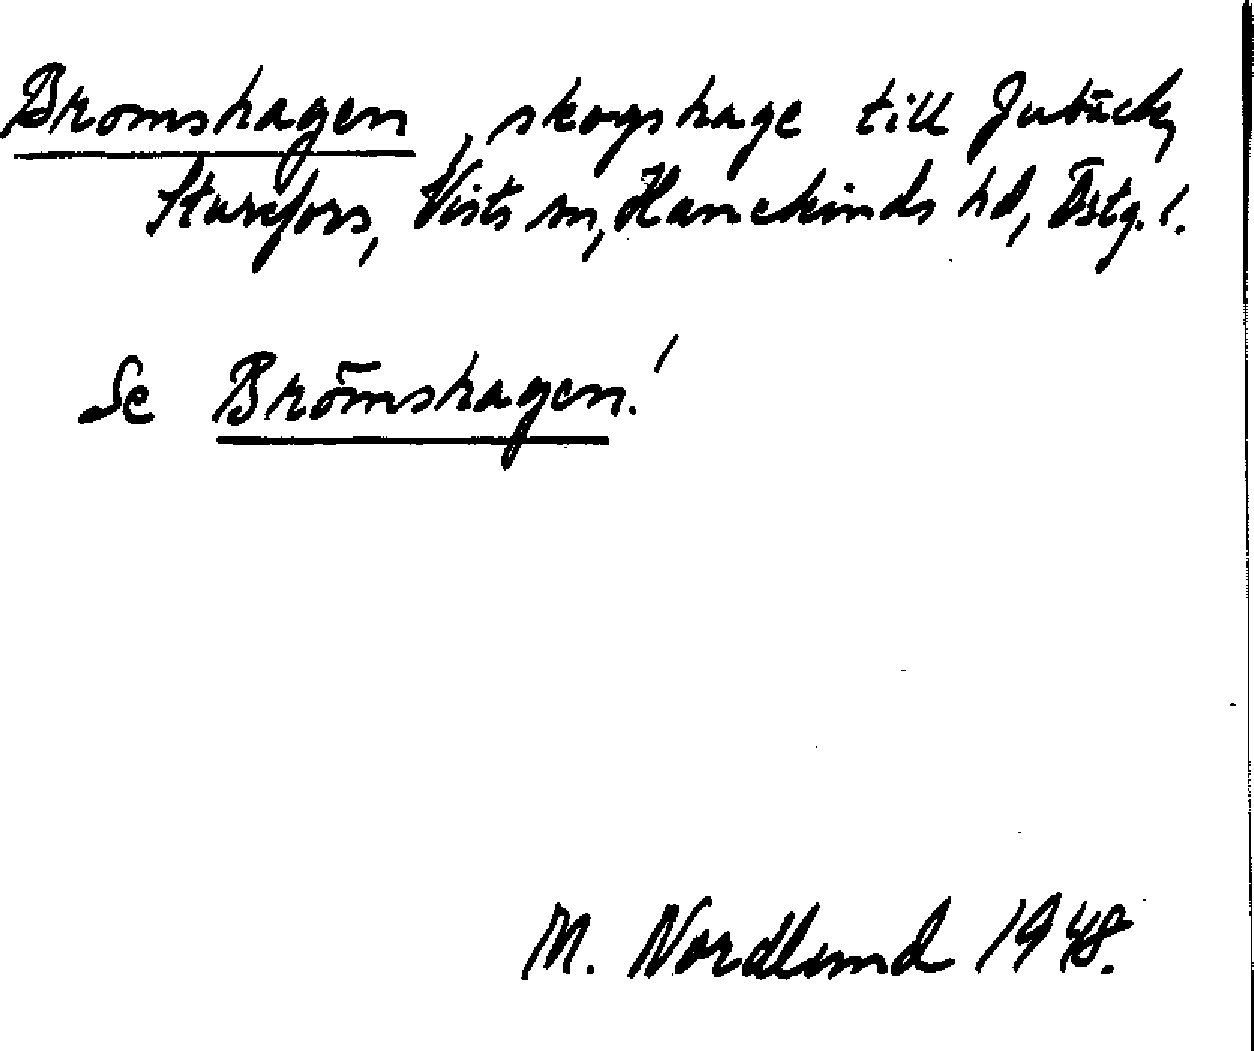 Bromshagen, skogshage till Jubäck,
Sturefors, Vists sn, Hanekinds hd, Östg. l.
Se Brömshagen!
M. Nordlund 1948.